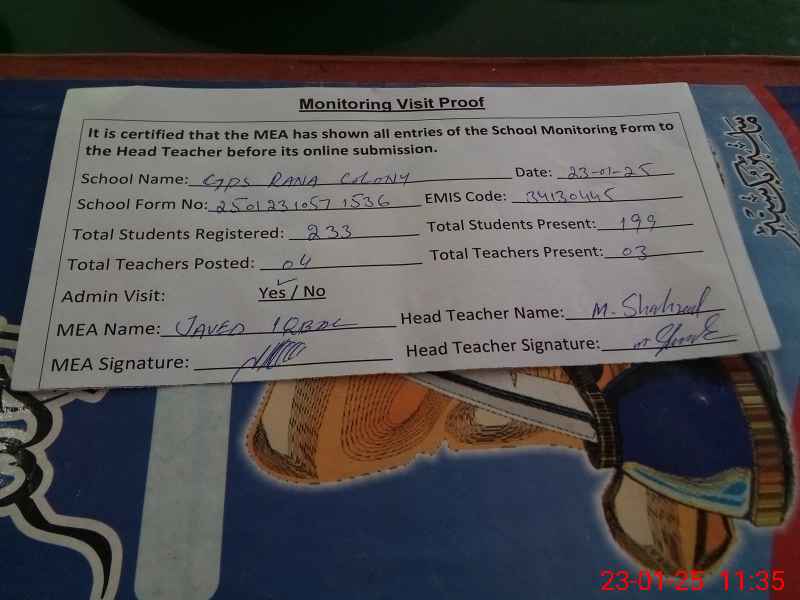 Monitoring Visit Proof
It is certified that the MEA has shown all entries of the School Monitoring Form to
the Head Teacher before its online submission.
School Name: GPS RANA COLONY Date: 23-01-25
School Form No: 25012310571536 EMIS Code: 34130445
Total Students Registered: 233 Total Students Present: 199
Total Teachers Posted: 04 Total Teachers Present: 03
Admin Visit: Yes / No
MEA Name: JAVED IQBAL Head Teacher Name: M. Shahzad
MEA Signature: Head Teacher Signature:
23-01-25 11:35